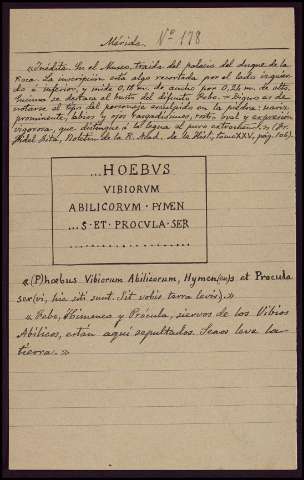 Mérida. Nº 178
«Inédita. En el Museo, traida del palacio del duque de la
Roca. La inscripción está algo recortada por el lado izquier-
do é inferior, y mide 0,18 m. de ancho por 0,26 m. de alto.
Encima se destaca el busto del difunto Febo. Digno es de
notarse el tipo del personaje esculpido en la piedra: nariz
prominente, labios y ojos rasgadísimos, rostro oval y expresión
vigorosa, que distingue á la legua al puro extremeño.» (Sr.
Fidel Fita, Boletín de la R. Acad. de la Hist., tomo XXV, pág. 106).
...HOEBVS
VIBIORVM
ABILICORVM · FYMEN
...S · ET · PROCVLA · SER
..................
«(P)hœbus Vibiorum Abilicorum, Hymen(aeu)s et Procula
ser(vi, hic siti sunt. Sit vobis terra levis).»
«Febo, Himeneo y Prócula, siervos de los Vibios
Abílicos, están aquí sepultados. Séaos leve la
tierra.»